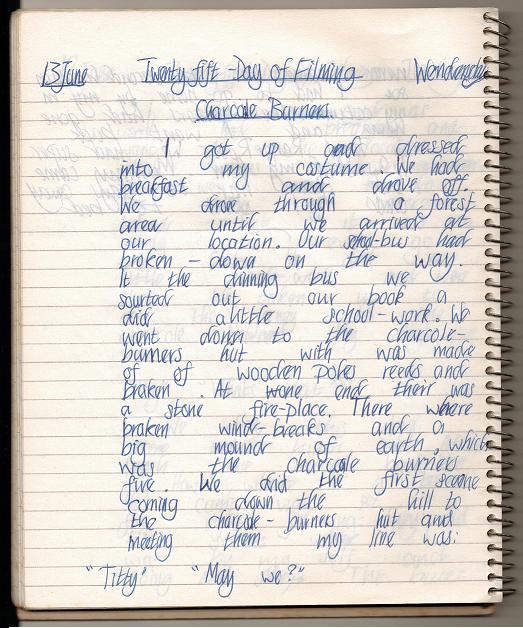 13 June Twenty fift-Day of Filming Wendensday
Charcole Burners
I got up and dressed
into my costume. We had
breakfast and drove off.
We drove through a forest
area until we arrived at
our location. Our school-bus had
broken-down on the way.
It the dinning bus we
sourted out our book a
did a little school-work. We
went down to the charcole-
burners hut with was made
of of wooden poles reeds and
braken. At wone end their was
a stone fire-place. There where
braken wind-breaks and a
big mound of earth, which
was the charcoale burners
fire. We did the first sceene
coming down the hill to
the charcole-burners hut and
meeting them my line was:
"Titty" "May we?"